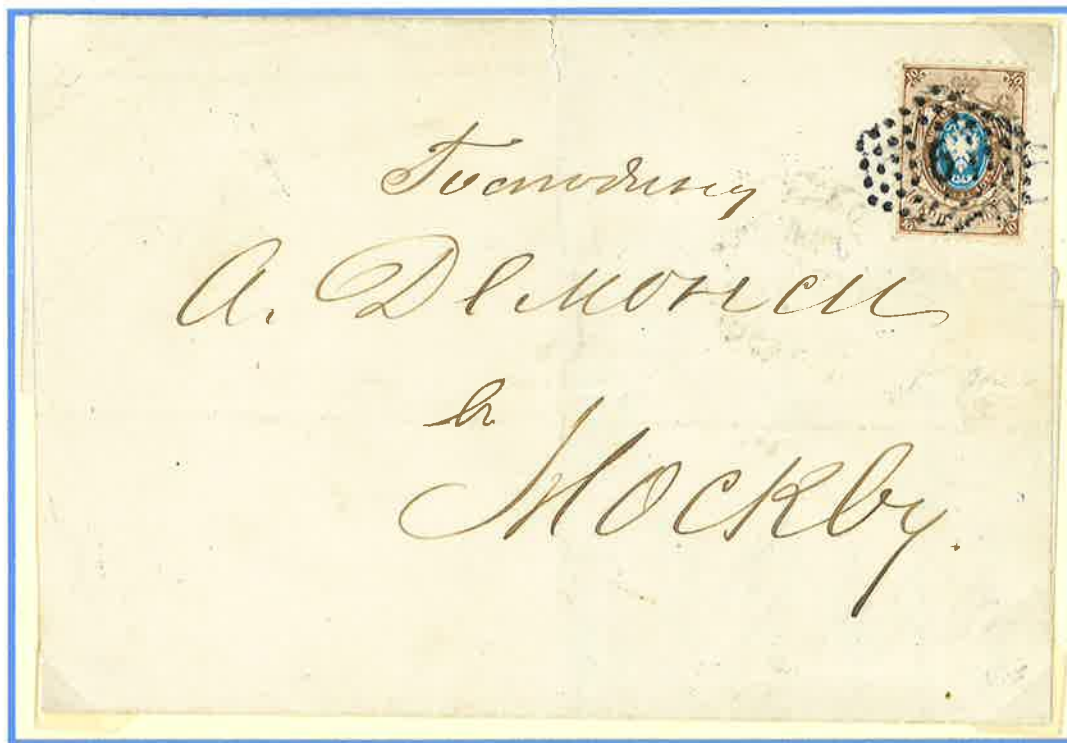 Господину
А. Демонси
въ
Москву.